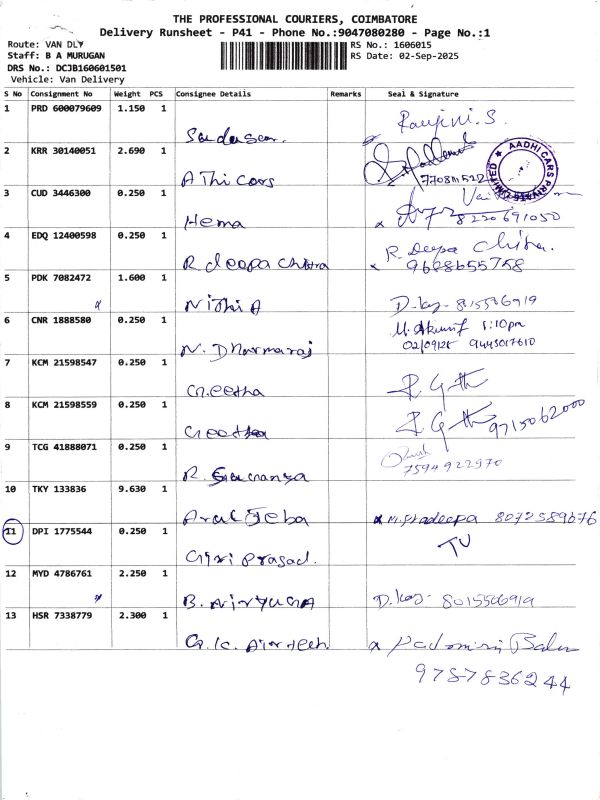 THE PROFESSIONAL COURIERS, COIMBATORE
Delivery Runsheet - P41 - Phone No.:9047080280 - Page No.:1
Route: VAN DLY
RS No.: 1606015
Staff: B A MURUGAN
RS Date: 02-Sep-2025
DRS No.: DCJB160601501
Vehicle: Van Delivery
S No Consignment No Weight PCS Consignee Details Remarks Seal & Signature
1 PRD 600079609 1.150 1
2 KRR 30140051 2.690 1
AADHI CARS PRIVATE LIMITED
A Thi Coos
3 CUD 3446300 0.250 1
Hema
8220691050
4 EDQ 12400598 0.250 1
R. Deepa Chitra.
R. deepa chitra
x 9688655758
5 PDK 7082472 1.600 1
Nithi A
D. kay - 8015506919
6 CNR 1888580 0.250 1
5:10pm
02/09/25 9445017610
N. Dharmaraj
7 KCM 21598547 0.250 1
Geetha
8 KCM 21598559 0.250 1
9715062000
Geetha
9 TCG 41888071 0.250 1
7594922970
R.
10 TKY 133836 9.630 1
Arul Jeba
x M. Pradeepa 8072589676
11 DPI 1775544 0.250 1
Giri Prasad.
12 MYD 4786761 2.250 1
B.
D. kay - 8015506919
13 HSR 7338779 2.300 1
G.K. Airtech
x Padmini Balu
9787836244